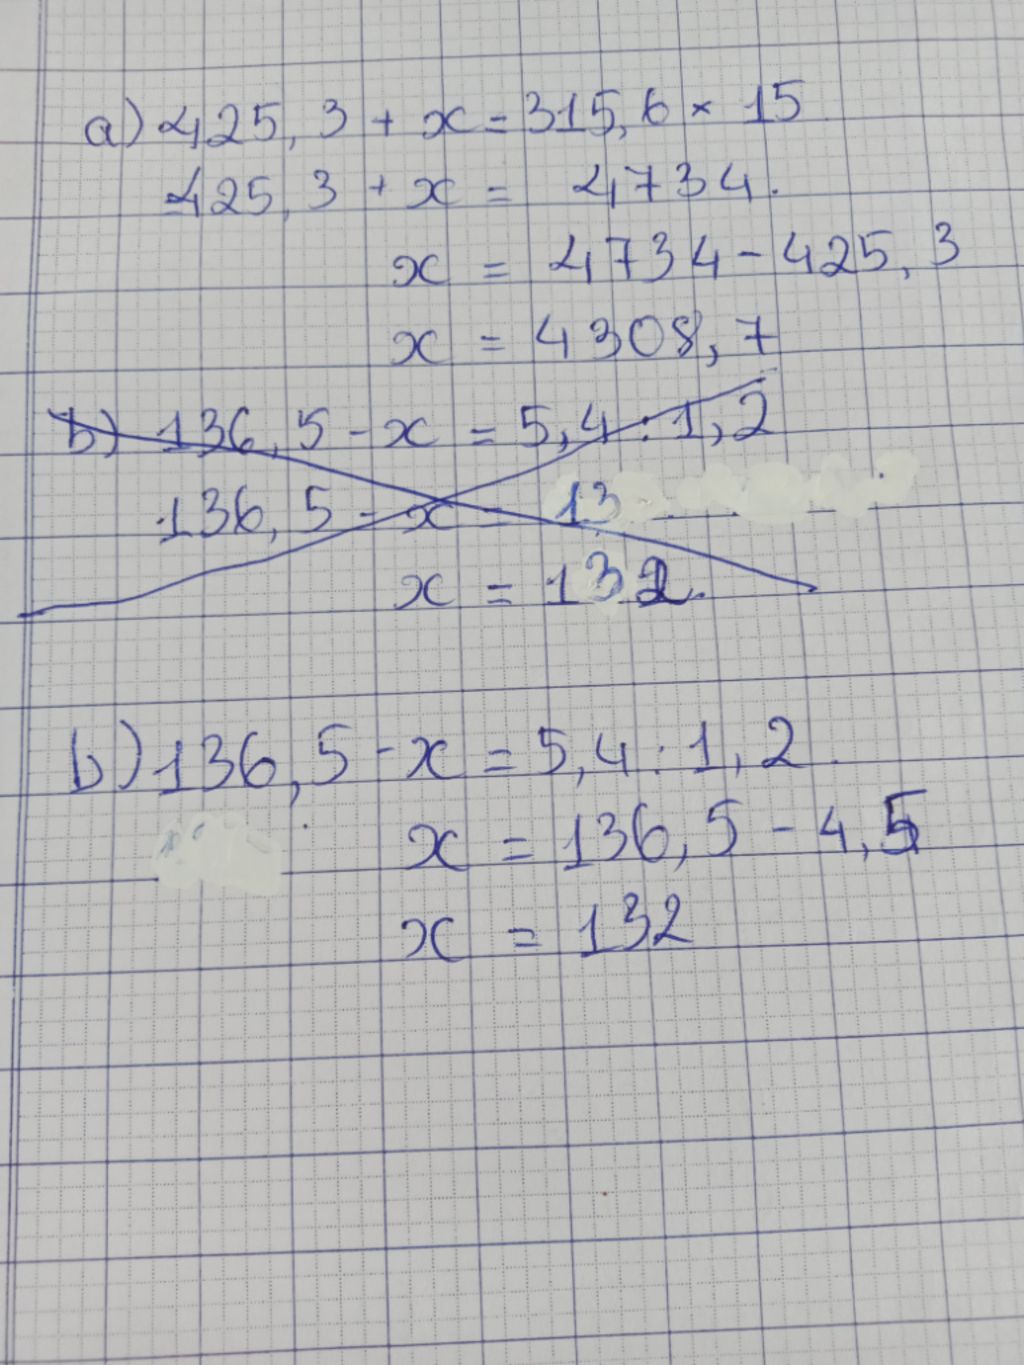 a) 425,3 + x = 315,6 × 15
425,3 + x = 4734.
x = 4734 - 425,3
x = 4308,7
b) 136,5 - x = 5,4 : 1,2
136,5 - x = 13
x = 132.
b) 136,5 - x = 5,4 : 1,2.
x = 136,5 - 4,5
x = 132